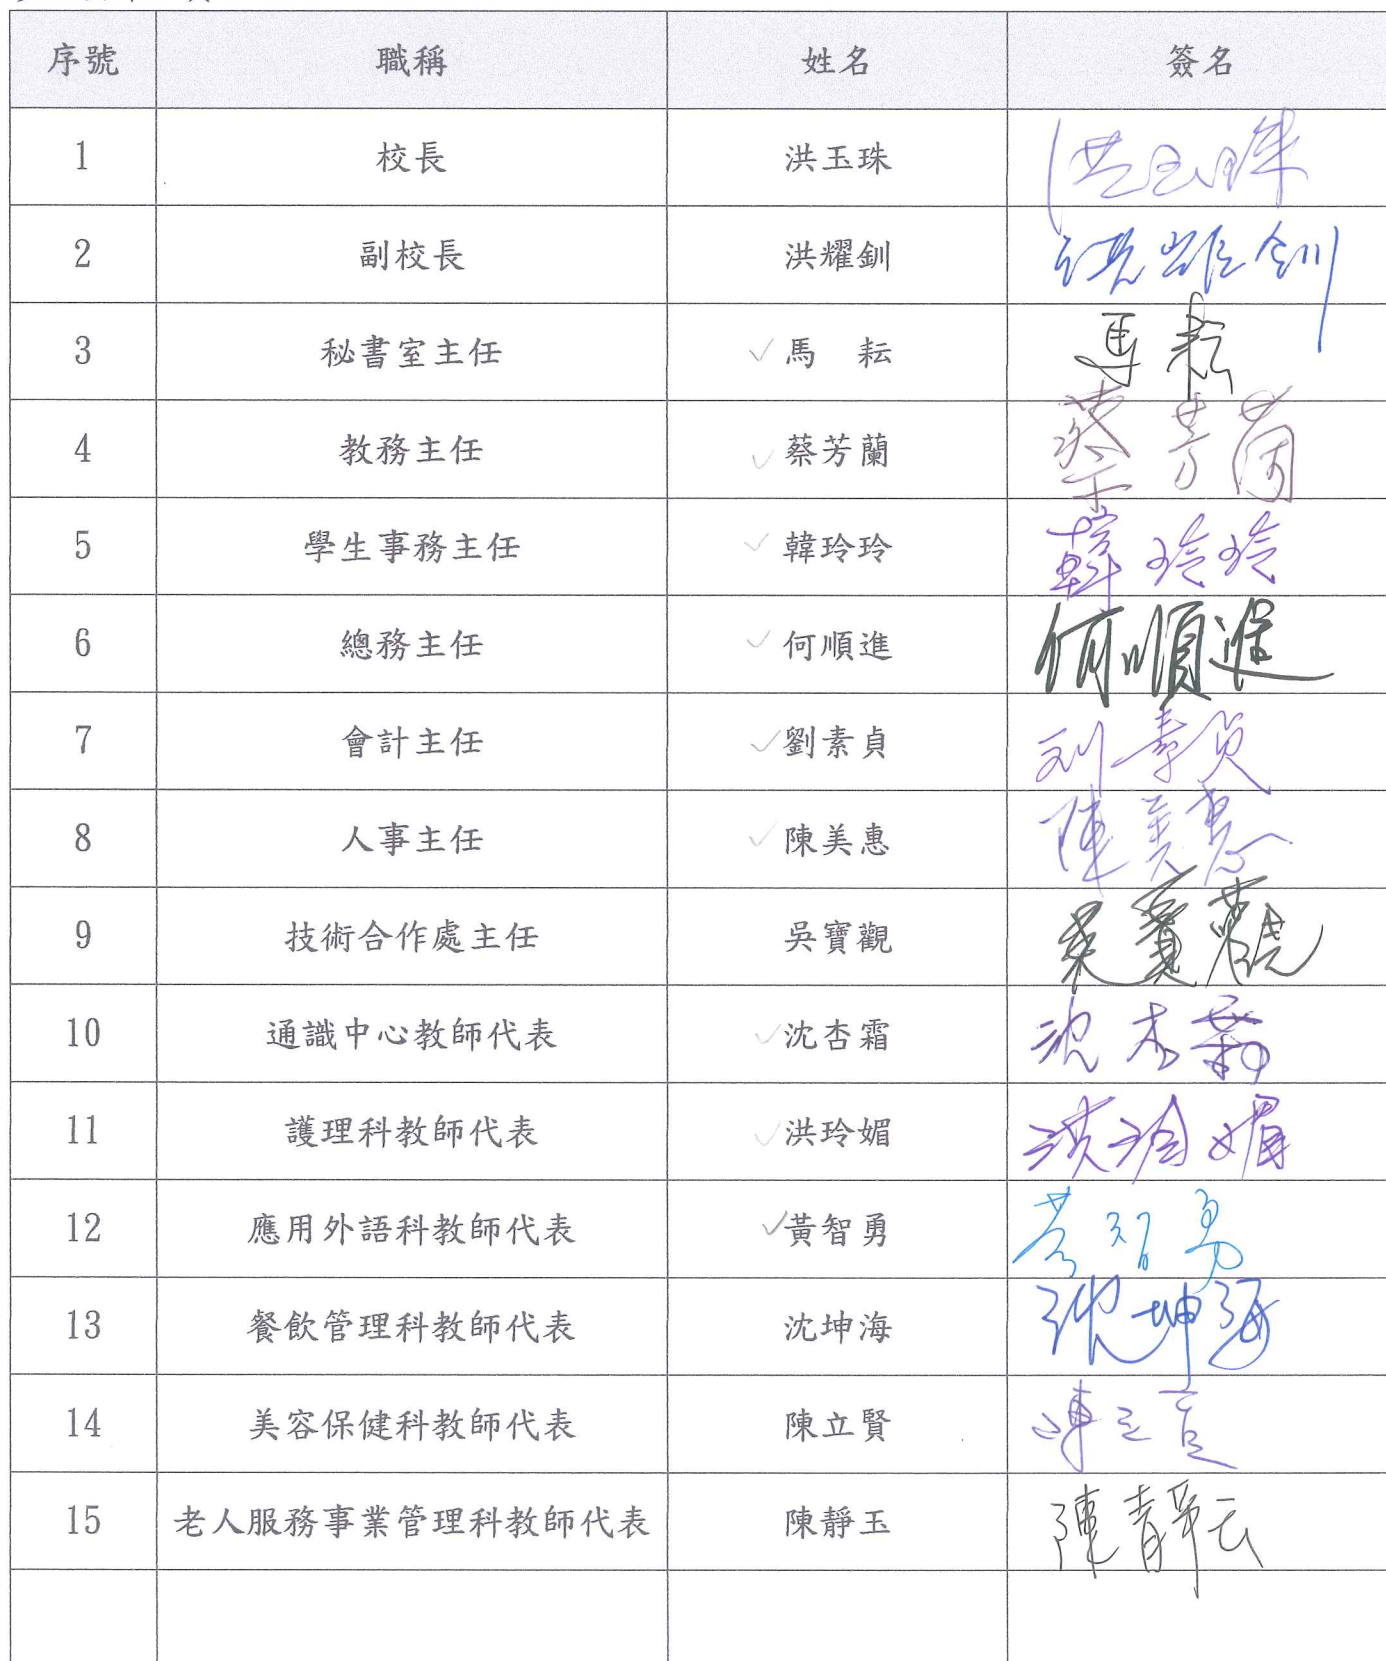 序號 職稱 姓名 簽名
1 校長 洪玉珠 洪玉珠
2 副校長 洪耀釧 洪耀釧
3 秘書室主任 ✓馬 耘 馬耘
4 教務主任 ✓蔡芳蘭 蔡芳蘭
5 學生事務主任 ✓韓玲玲 韓玲玲
6 總務主任 ✓何順進 何順進
7 會計主任 ✓劉素貞 刘素貞
8 人事主任 ✓陳美惠 陳美惠
9 技術合作處主任 吳寶觀 吳寶觀
10 通識中心教師代表 ✓沈杏霜 沈杏霜
11 護理科教師代表 ✓洪玲媚 洪玲媚
12 應用外語科教師代表 ✓黃智勇 黃智勇
13 餐飲管理科教師代表 沈坤海 沈坤海
14 美容保健科教師代表 陳立賢 陳立賢
15 老人服務事業管理科教師代表 陳靜玉 陳靜玉